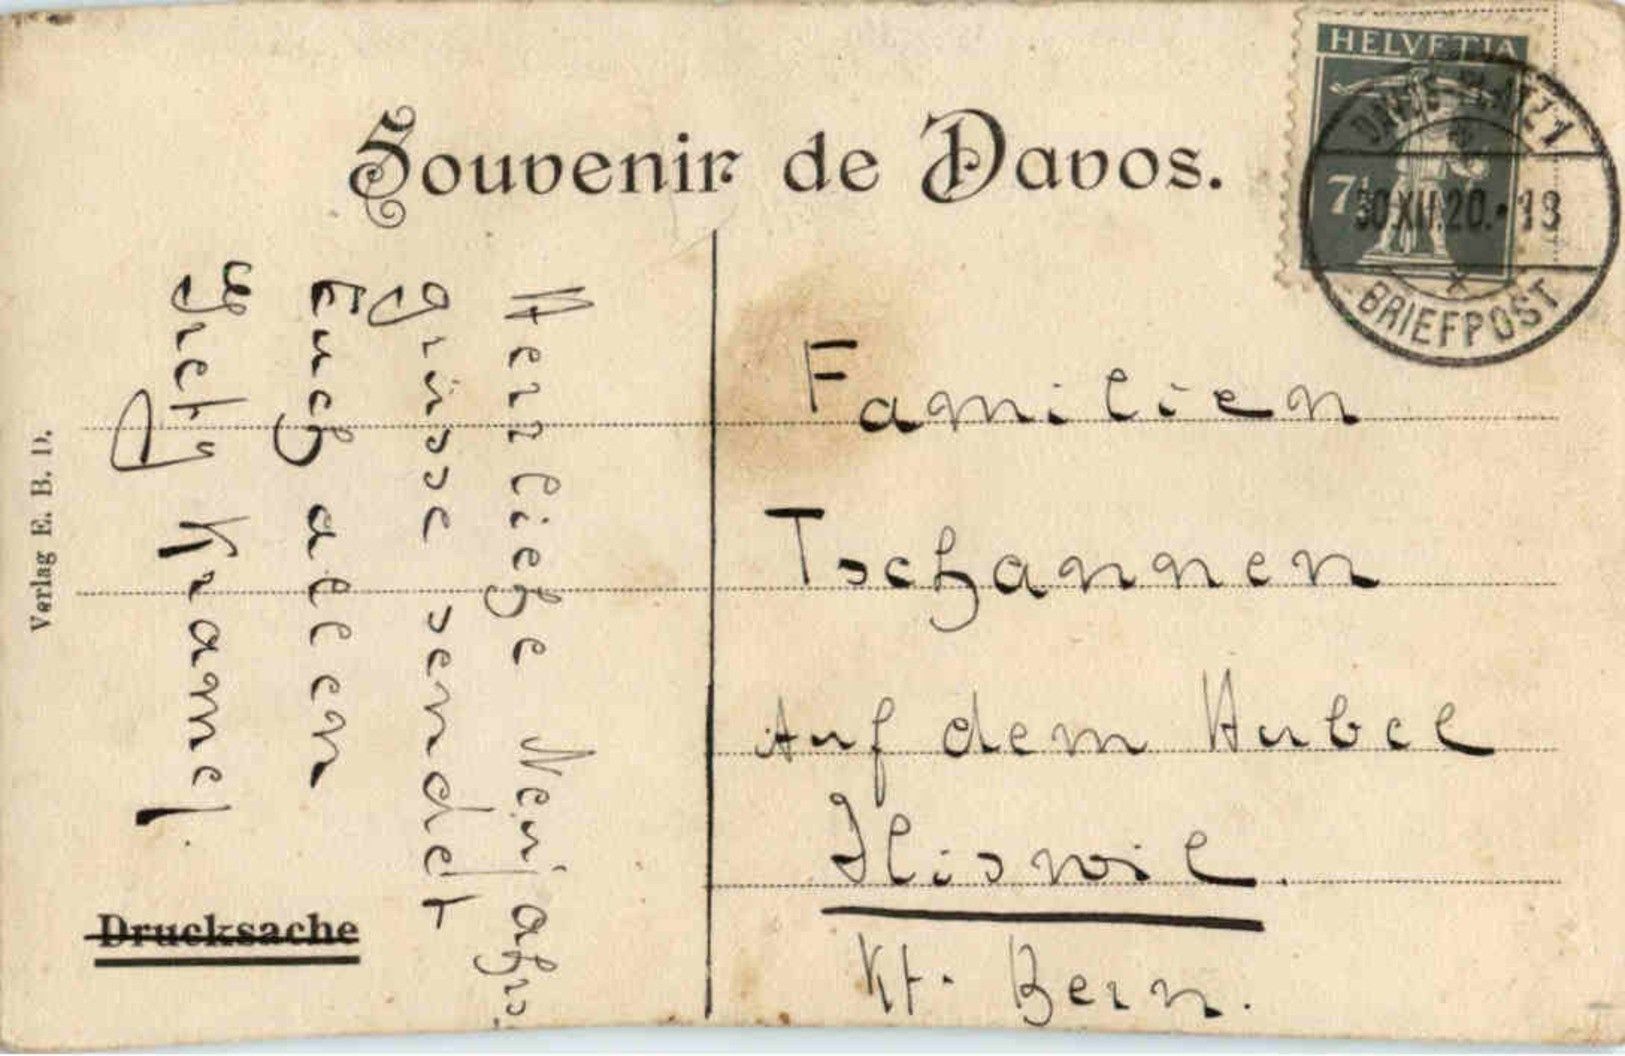 Souvenir de Davos.
HELVETIA
7½
DAVOS-PLATZ 1
30.XII.20.-13
BRIEFPOST
Herzliche Neujahrs
grüsse sendet
Euch allen
Grety Kramer.
Verlag E. B. D.
Drucksache
Familien
Tschannen
Auf dem Hubel
Iliswil.
Kt. Bern.